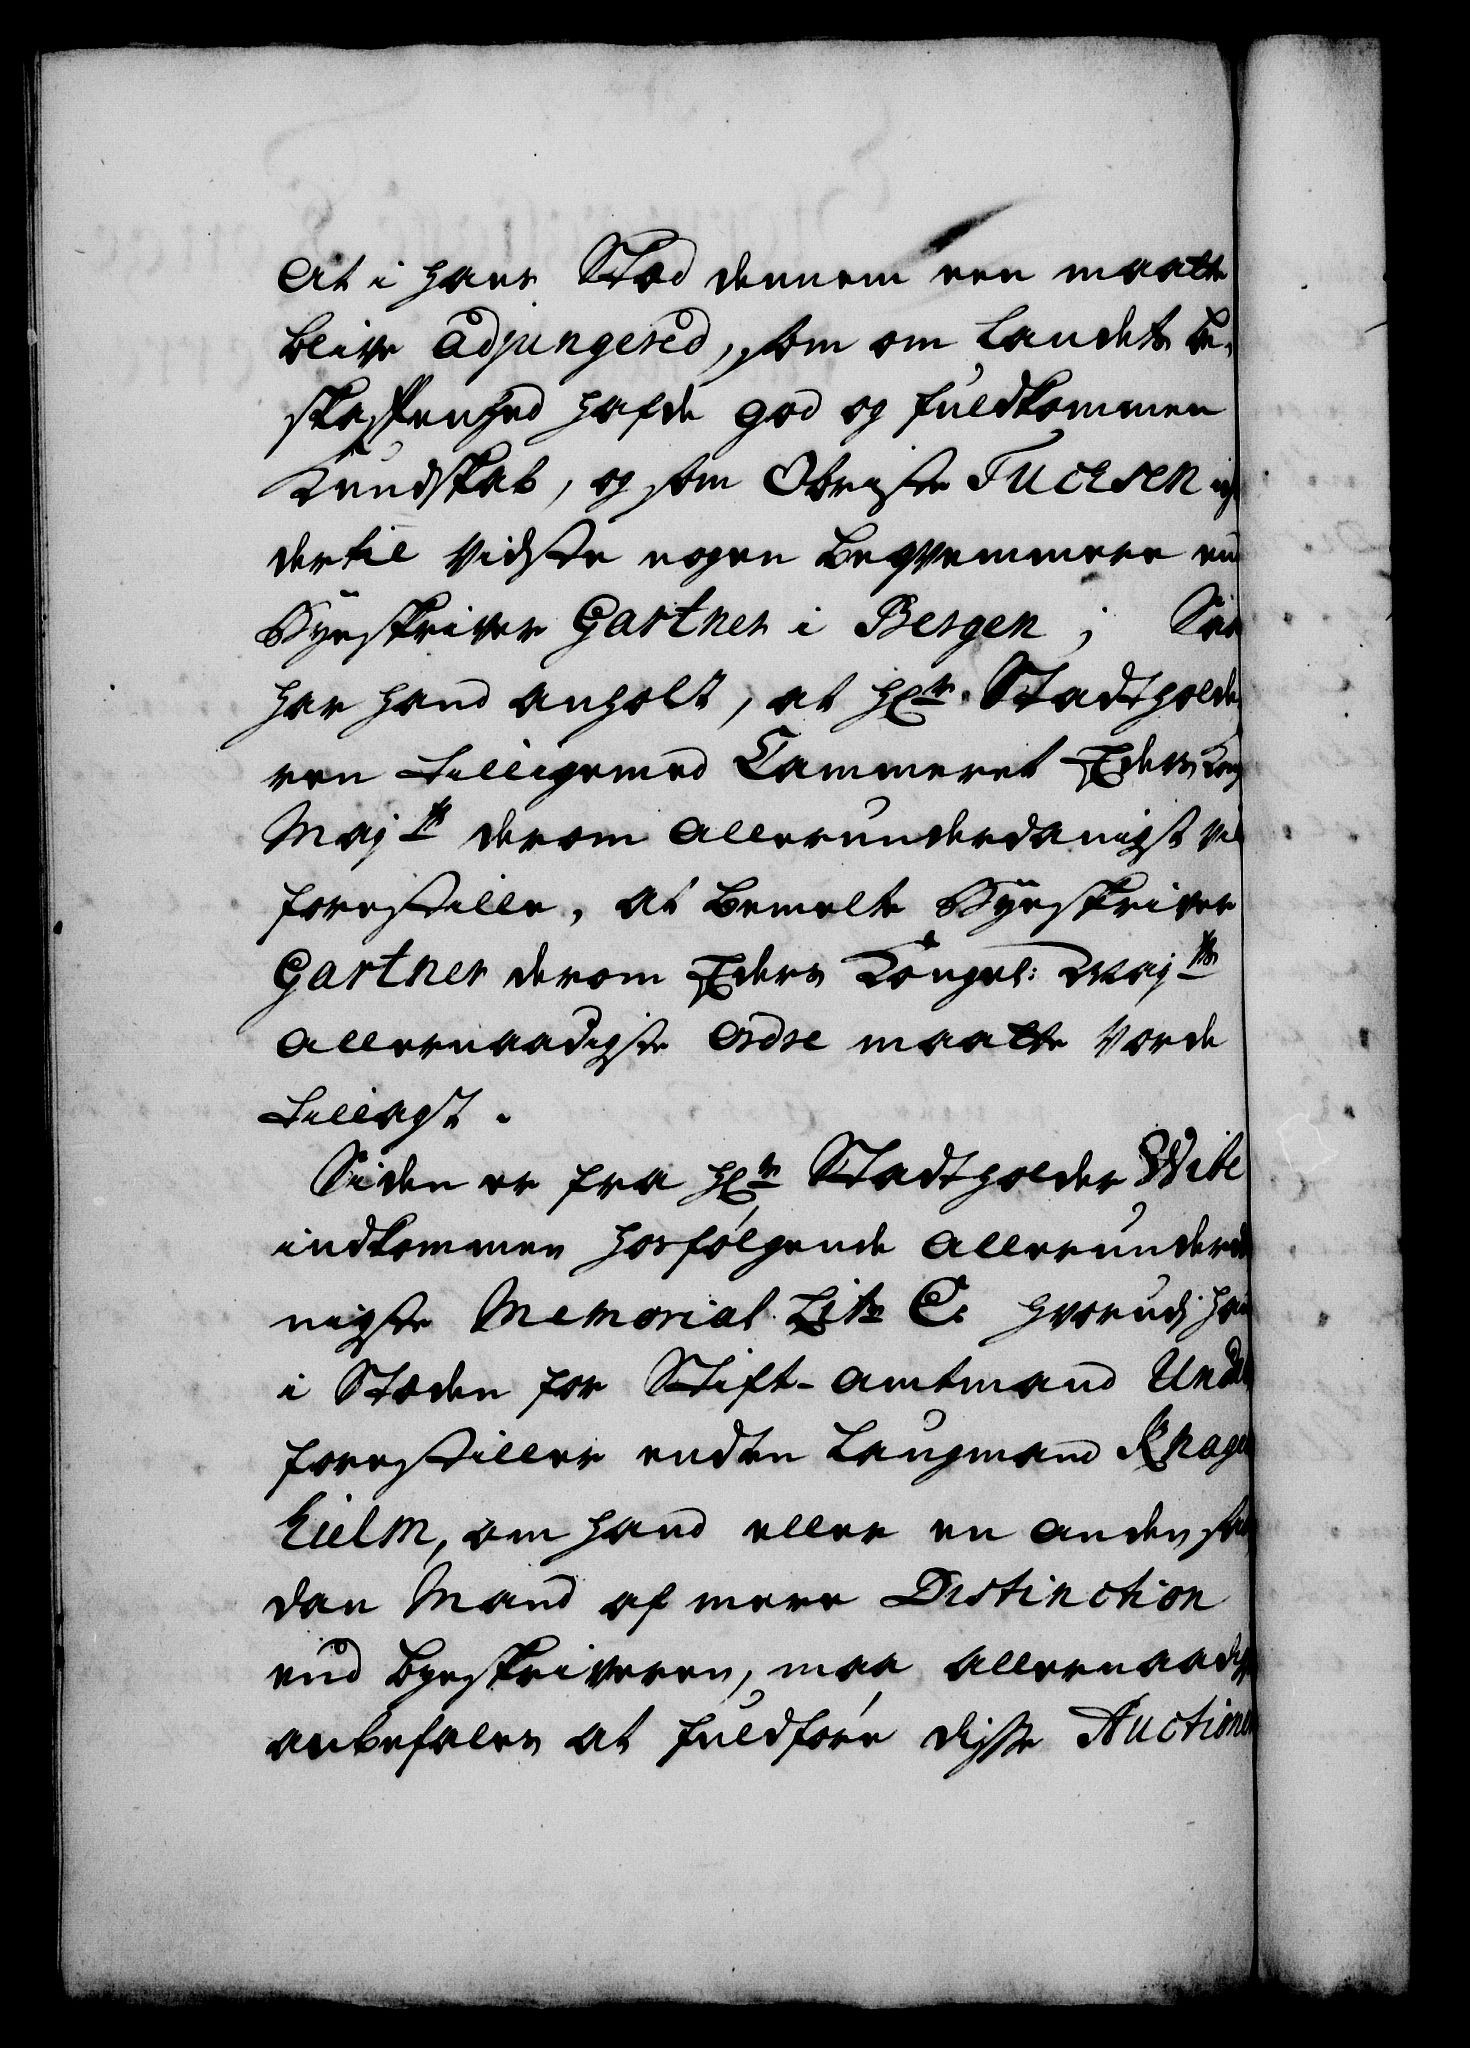 at i hans Sted dennem een maatte
blive adjungered, som om Landets be-
skaffenhed hafde god og fuldkommen
Kundskab, og som Obriste Tuchsen ej
dertil vidste nogen beqvemmere end
Byeskriver Gartner i Bergen;
har hand anholt, at Hr. Stadtholde
ren tilligemed Cammeret Eders Kong
Majts derom allerunderdanigst vil
forestille, at bemelte Byeskriver
Gartner derom Eders Kongel: Majts
allernaadigste Ordre maatte vorde
tillagt.
Siden er fra Hr. Stadtholder Wibe
indkommen hosfølgende allerunderda
nigste Memorial Litr C. hvorudj hand
i Stæden for Stift-amtmand Undal
forestiller enten Laugmand Knagen
hielm, om hand eller en anden saa
dan Mand af meere Distinction
end byeskriveren, maa allernaadigst
anbefales at fuldføre disse Auctioner